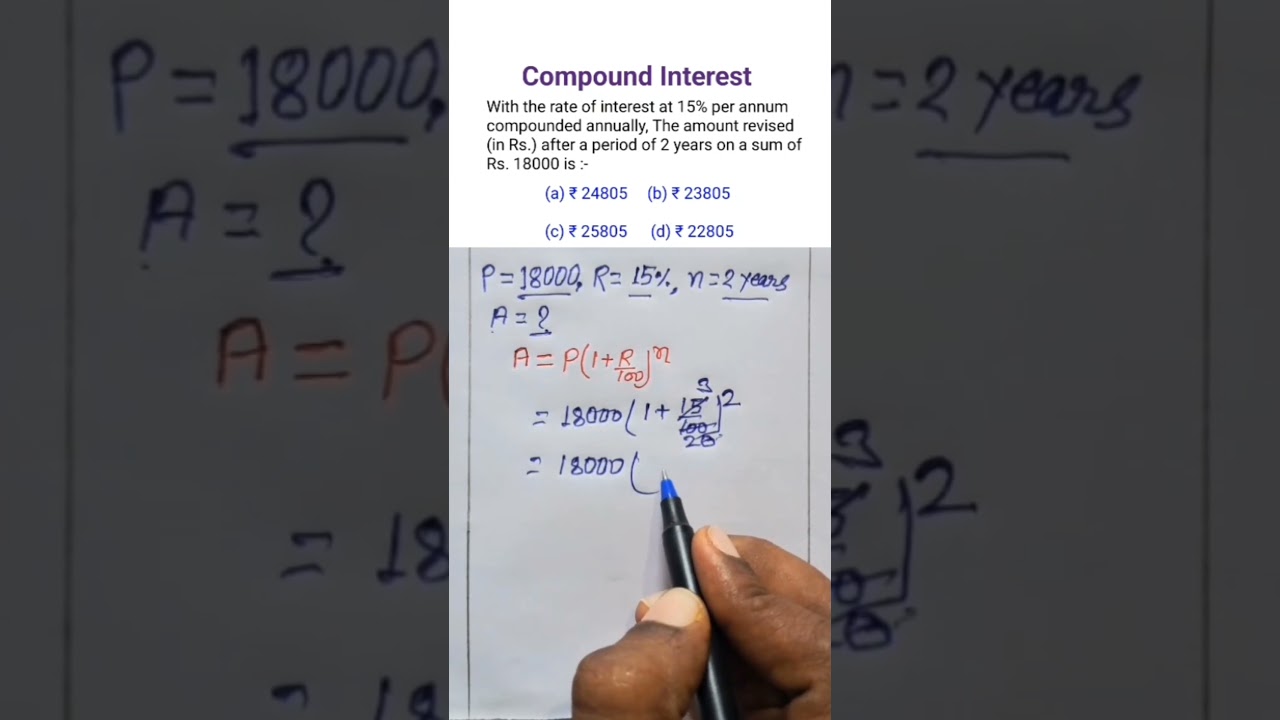 Compound Interest
With the rate of interest at 15% per annum
compounded annually, The amount revised
(in Rs.) after a period of 2 years on a sum of
Rs. 18000 is :-
(a) ₹ 24805 (b) ₹ 23805
(c) ₹ 25805 (d) ₹ 22805
P = 18000, R = 15%, n = 2 years
A = ?
A = P(1+R/100)^n
= 18000(1 + 15/100 3/20)^2
= 18000(
P = 18000,
n = 2 years
A = ?
A = P(
3
2
= 18
20
= 18